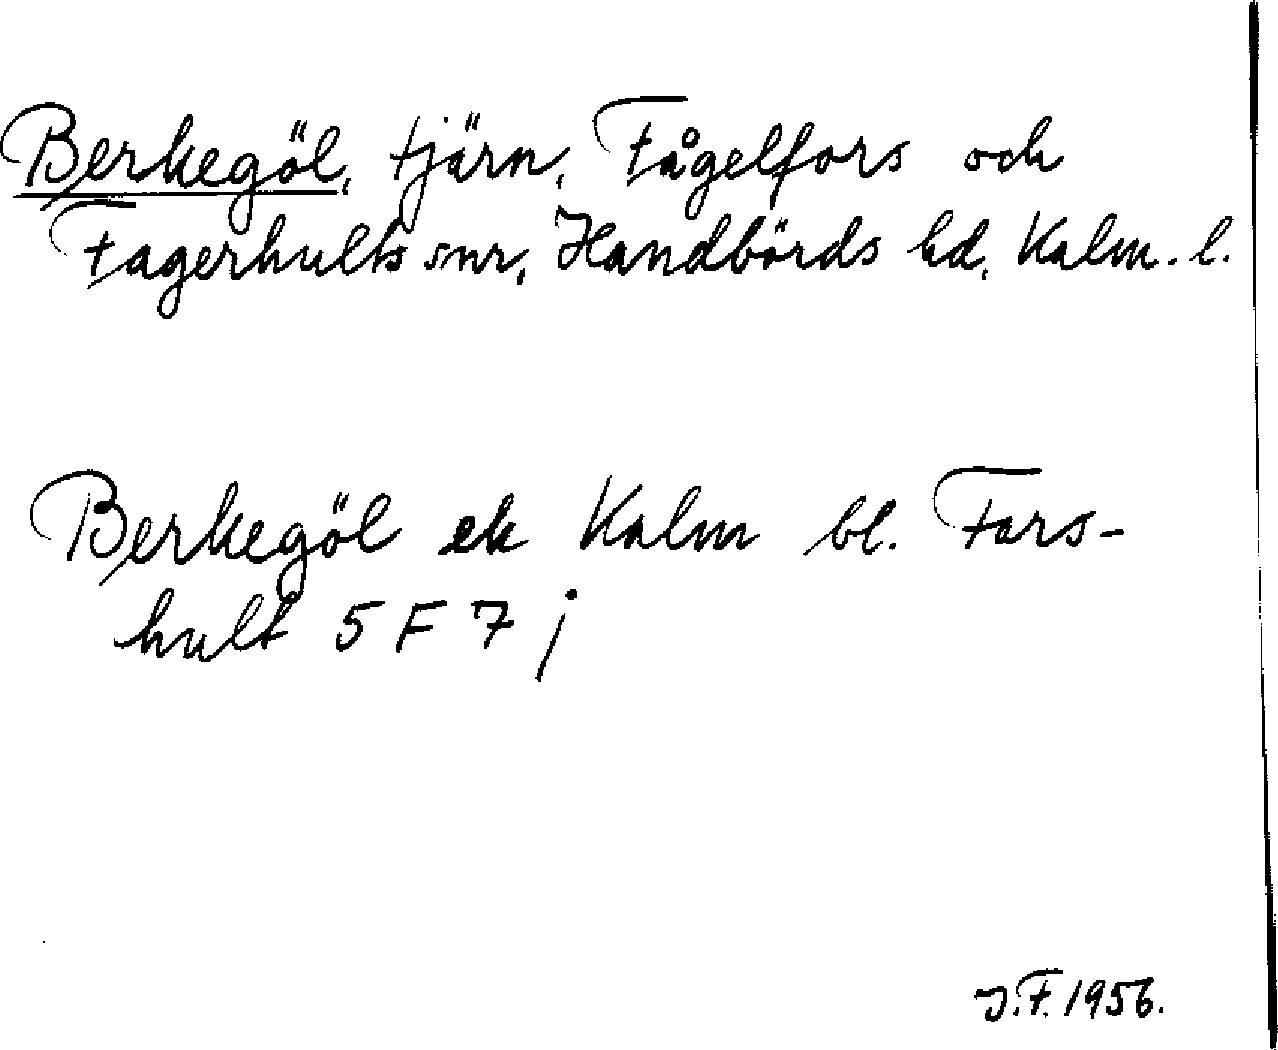 Berkegöl, tjärn, Fågelfors och
Fagerhults snr, Handbörds hd, Kalm. l.
Berkegöl ek Kalm bl. Fars-
hult 5 F 7 j
J.F. 1956.